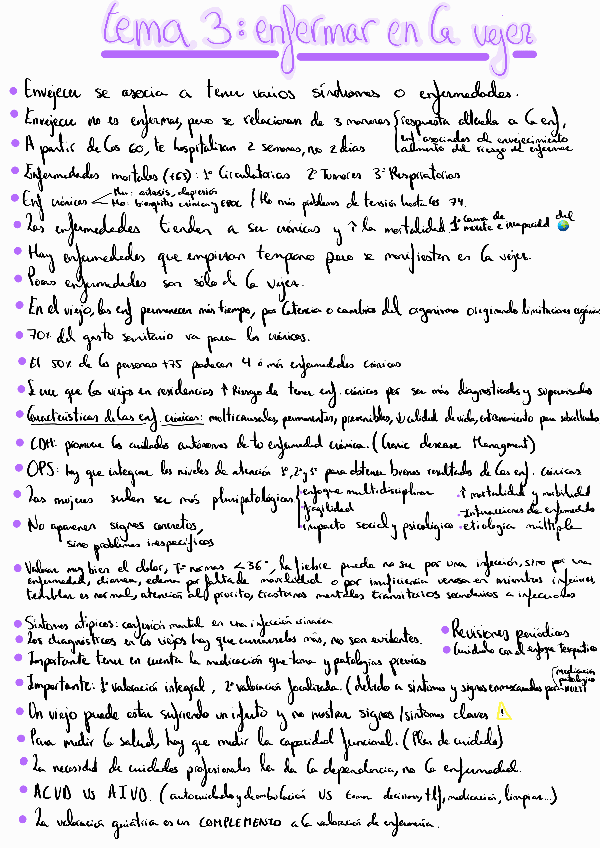 tema 3: enfermar en la vejez
Envejecer se asocia a tener varios síndromes o enfermedades.
Envejecer no es enfermar, pero se relacionan de 3 maneras respuesta alterada a la enf,
enf asociadas de envejecimiento
A partir de los 60, te hospitalizan 2 semanas, no 2 días aumento del riesgo de enfermar
Enfermedades mortales (+65): 1º Circulatorias 2º Tumores 3º Respiratorias
Enf crónicas Muj: artrosis, depresión
Ho: bronquitis crónica y EPOC / Ho más problemas de tensión hasta los 74.
Las enfermedades tienden a ser crónicas y ↑ la mortalidad 1º causa de muerte e incapacidad del
Hay enfermedades que empiezan temprano pero se manifiestan en la vejez.
Pocas enfermedades son sólo de la vejez.
En el viejo, las enf permanecen más tiempo, por latencia o cambios del organismo originando limitaciones
70% del gasto sanitario va para los crónicos.
El 50% de las personas +75 padecen 4 ó más enfermedades crónicas
Se cree que los viejos en residencias ↑ Riesgo de tener enf. crónicas por ser más diagnosticados y supervisados
Características de las enf. crónicas: multicausales, permanentes, prevenibles, ↓ calidad de vida, entrenamiento para
CDM: promueve los cuidados autónomos de tu enfermedad crónica. (Cronic desease Managment)
OPS: hay que integrar los niveles de atención 1º, 2º y 3º para obtener buenos resultados de las enf. crónicas
Las mujeres suelen ser más pluripatológicas enfoque multidisciplinar · ↑ mortalidad y morbilidad
fragilidad · Interacciones de enfermedades
No aparecen signos concretos, impacto social y psicológico · etiología múltiple
sino problemas inespecíficos
Valorar muy bien el dolor, Tª normas < 36°, la fiebre puede no ser por una infección, sino por una
enfermedad, diarrea, edema por falta de movilidad o por insuficiencia venosa en miembros inferiores,
temblar es normal, atención al prurito, trastornos mentales transitorios secundarios a infecciones
Síntomas atípicos: confusión mental en una infección urinaria
Los diagnósticos en los viejos hay que currárselos más, no son evidentes.
Revisiones periódicas
Cuidado con el enfoque terapeútico
Importante tener en cuenta la medicación que toma y patologías previas
Importante: 1º valoración integral, 2º valoración focalizada. (debido a síntomas y signos enmascarados por medicación
patologías
Un viejo puede estar sufriendo un infarto y no mostrar signos/síntomas claves !
Para medir la salud, hay que medir la capacidad funcional. (Plan de cuidado)
La necesidad de cuidados profesionales la da la dependencia, no la enfermedad.
ACVD VS AIVD. (autocuidado y deambulación VS tomar decisiones, tlf, medicación, limpiar...)
La valoración geriátrica es un COMPLEMENTO a la valoración de enfermería.